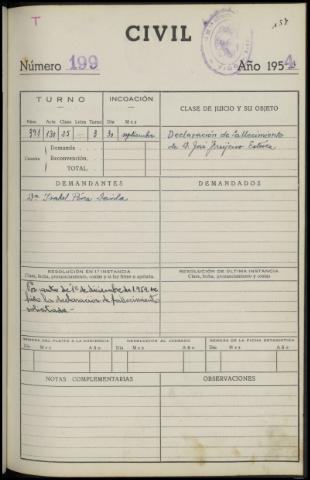 T
157
CIVIL
Número 199
Año 1954
TURNO
INCOACIÓN
CLASE DE JUICIO Y SU OBJETO
Núm. Acta Clase Letra Turno Día Mes
391 130 25 - 3 30 septiembre
Declaración de fallecimiento
de D. José
Demanda
Cuantía Reconvención.
TOTAL.
DEMANDANTES
DEMANDADOS
Dª Isabel Pérez
RESOLUCIÓN EN 1ª INSTANCIA
Clase, fecha, pronunciamiento, costas y si fue firme o apelada.
RESOLUCIÓN DE ÚLTIMA INSTANCIA
Clase, fecha, pronunciamiento y costas.
Por auto de 1º de diciembre de 1959 se
hizo la declaración de fallecimiento
solicitada -
REMISIÓN DEL PLEITO A LA AUDIENCIA
DEVOLUCIÓN AL JUZGADO
REMISIÓN DE LA FICHA ESTADÍSTICA
Día Mes Año Día Mes Año Día Mes Año
NOTAS COMPLEMENTARIAS
OBSERVACIONES